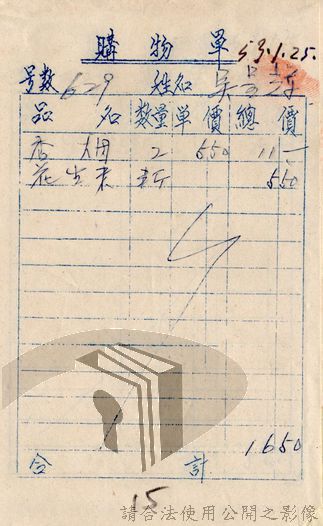 購物單 53.1.25.
号數 629 姓名 吳
品名 数量 单價 總價
香烟 2 550 11一
花生米 550
合計 1650
15
請合法使用公開之影像